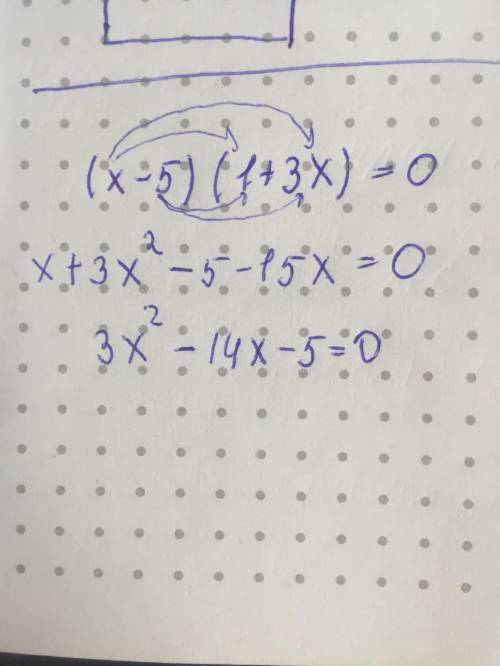 (x-5)(1+3x)=0
x+3x²-5-15x=0
3x²-14x-5=0